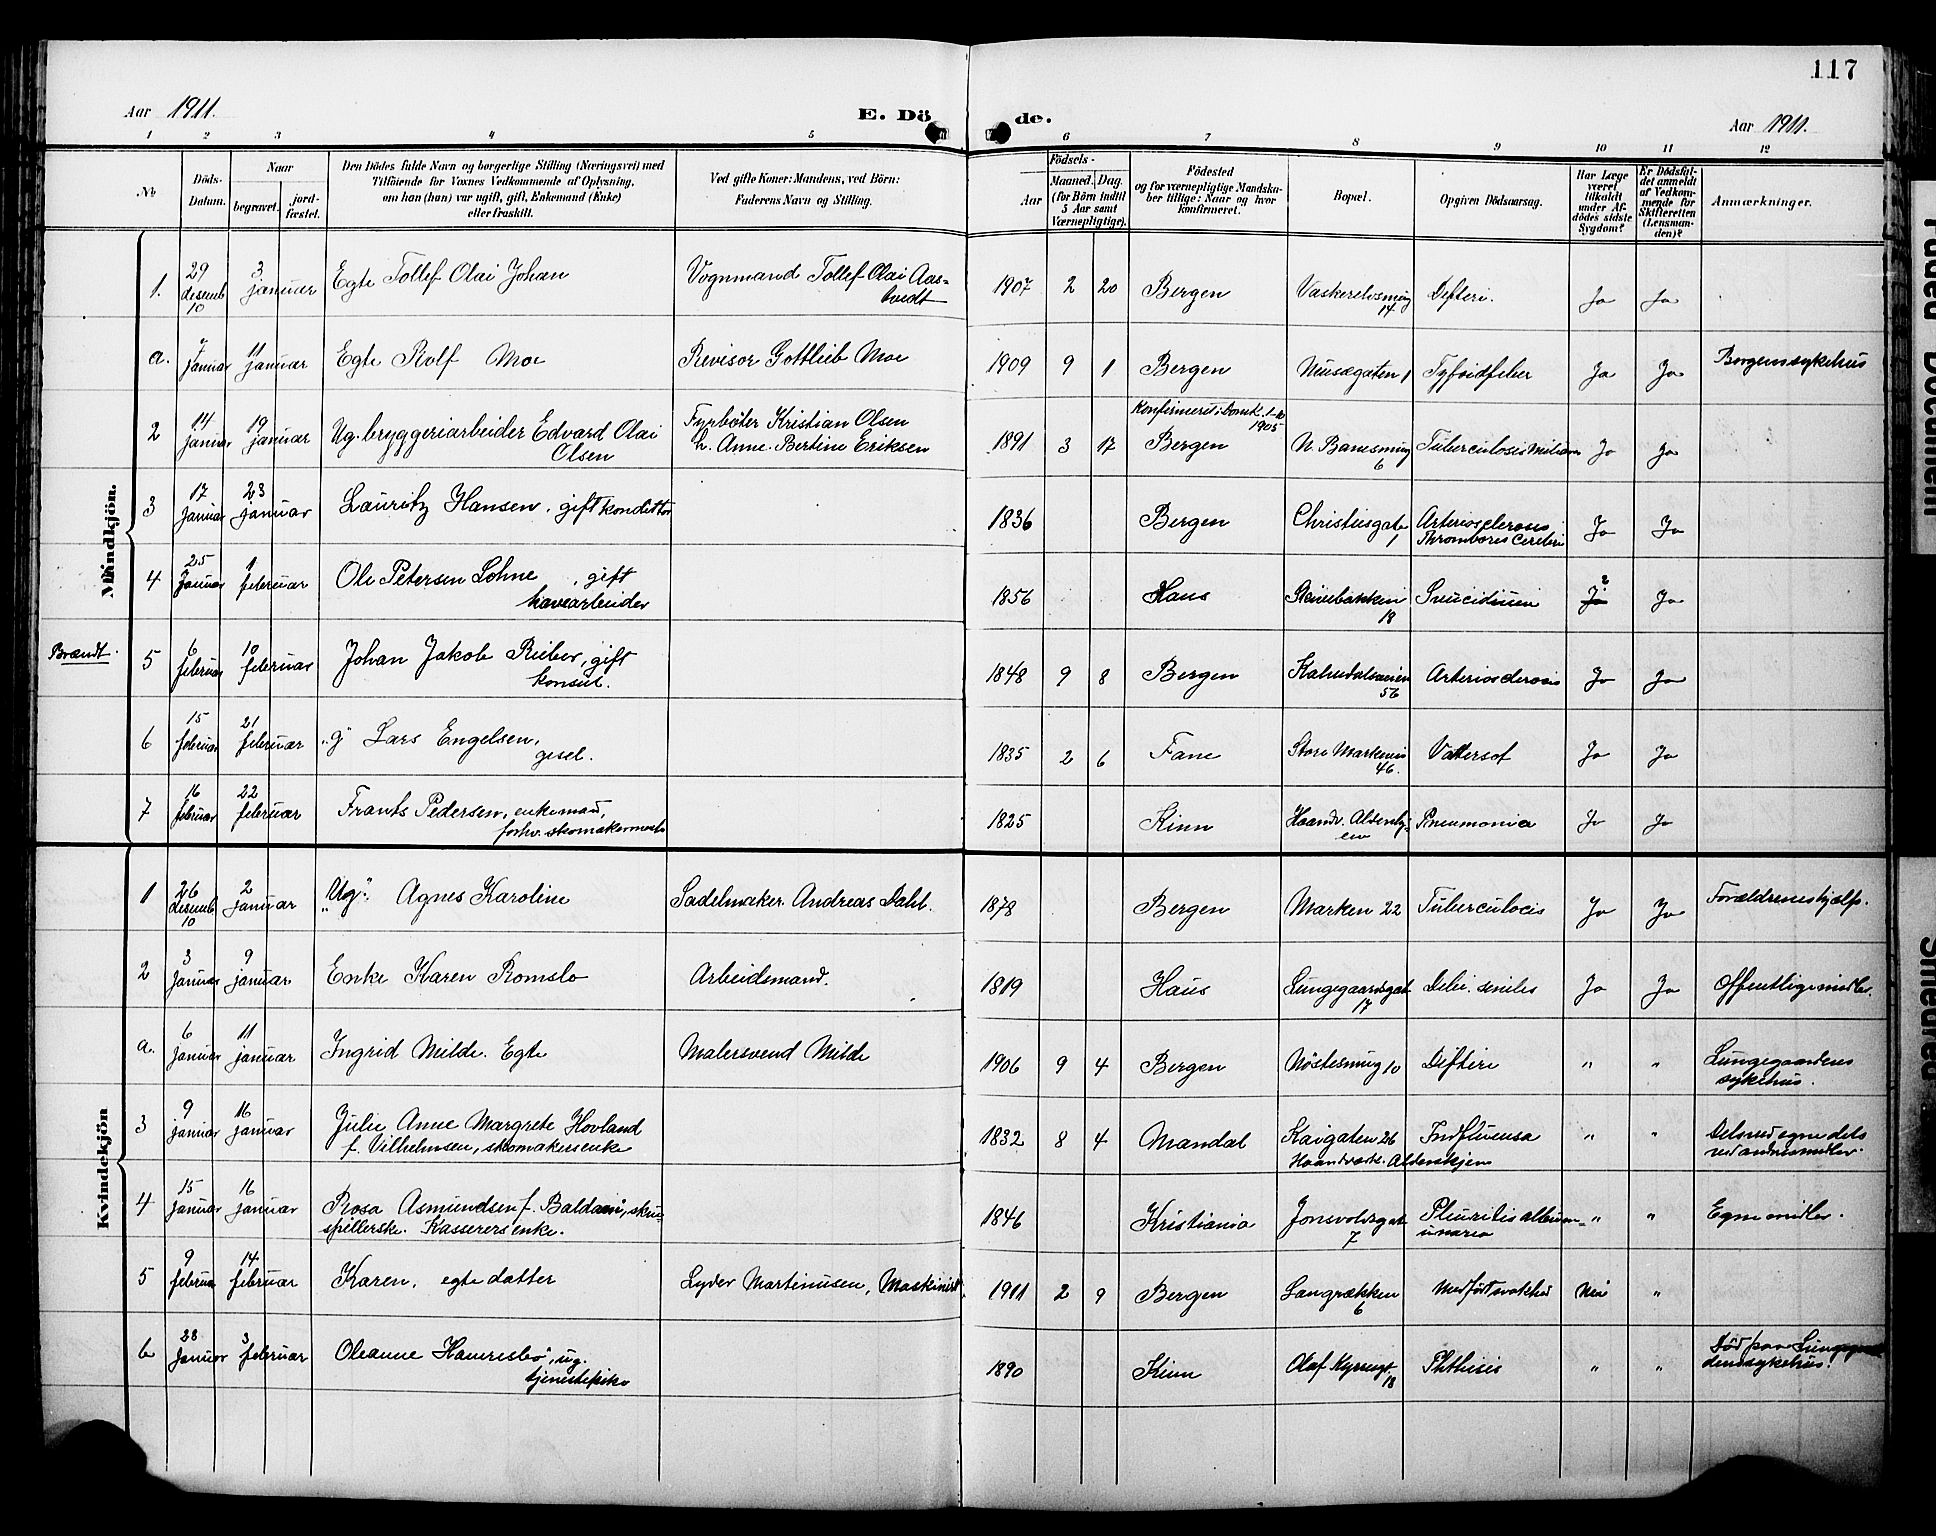 117
Aar 1911.
E. Dö de.
Aar 1911.
1 2 3 4 5 6 7 8 9 10 11 12
No
Döds-Datum.
Naar
begravet.
jord-fæstet.
Den Dödes fulde Navn og borgerlige Stilling (Næringsvei) med
Tilföiende for Voxnes Vedkommende af Oplysning,
om han (hun) var ugift, gift, Enkemand (Enke)
eller fraskilt.
Ved gifte Koner: Mandens, ved Börn:
Faderens Navn og Stilling.
Födsels-
Aar
Maaned. Dag.
(for Börn indtil
5 Aar samt
Værnepligtige).
Födested
og for værnepligtige Mandska-
ber tillige: Naar og hvor
konfirmeret.
Bopæl.
Opgiven Dödsaarsag.
Har Læge
været
tilkaldt
under Af-
dödes sidste
Sygdom?
Er Dödsfal-
det anmeldt
af Vedkom-
mende for
Skifteretten
(Lensman-
den)?
Anmærkninger.
Mandkjön.
1. 29 desemb 10 3 januar Egte Tollef Olai Johan Vognmand Tollef Olai Aas-
bredt 1907 2 20 Bergen 14 Difteri. Ja Ja
a. 7 januar 11 januar Egte Rolf Moe Revisor Gottlieb Moe 1909 9 1 Bergen Musægaten 1 Tyfoidfeber Ja Ja Bergens sykehus
2 14 januar 19 januar Ug. bryggeriarbeider Edvard Olai
Olsen Fyrböter Kristian Olsen
h. Anne Bertine Eriksen 1891 3 17 Konfirmeret i Domk. 1-10
1905
Bergen 6 Tuberculosis Ja Ja
3 17 januar 23 januar Lauritz Hansen, gift konditor 1836 Bergen Christiesgate 1 Arteriosclerosis
Thrombosis Cerebri Ja Ja
4 25 januar 1 februar Ole Petersen Lohne, gift
havearbeider 1856 Haus Steinebakken 18 Suicidium Ja ? Ja
Brændt.
5 6 februar 10 februar Johan Jakob Rieber, gift
konsul. 1848 9 8 Bergen Kalvedalsveien 56 Arteriosclerosis Ja Ja
6 15 februar 21 februar "g" Lars Engelsen,
gesel. 1835 2 6 Fane Store Markevei 46. Vattersot Ja Ja
7 16 februar 22 februar Frants Pedersen, enkemand,
forhv. skomakermester 1825 Kinn Haandv. Aldershj-
em Pneumonia Ja Ja
Kvindekjön
1 26 desemb 10 2 januar "Ug". Agnes Karoline Sadelmaker Andreas Dahl. 1878 Bergen Marken 22 Tuberculosis Ja Ja Forældreneshjælp.
2 3 januar 9 januar Enke Karen Romslo Arbeidsmand. 1819 Haus Lungegaardsgat 17 Debil. senilis Ja Ja Offentlige midler.
a. 6 januar 11 januar Ingrid Milde. Egte Malersvend Milde 1906 9 4 Bergen Nöstesmug 10 Difteri " " Lungegaardens
sykehus.
3 9 januar 16 januar Julie Anne Margrete Hovland
f. Vilhelmsen, skomakersenke 1832 8 4 Mandal Kaigaten 26
Haandverk. Aldershjem Indfluensa " " Dels ved egne dels
ved andres midler.
4 15 januar 16 januar Rosa Asmundsen f. Baldami, sku-
spillerske. Kasserersenke. 1846 Kristiania Jonsvoldsgat 7 Pleuritis album-
unaria " " Egne midler.
5 9 februar 14 februar Karen, egte datter Lyder Martinusen, Maskinist 1911 2 9 Bergen Langrækken 6 Medfödt svakhed Nei "
6 28 januar 3 februar Oleanne Hamresbö, ug.
tjenestepike 1890 Kinn Olaf Kyrresgt. 18 Phthisis " " Död paa
dens sykehus.
Faded Document
Smeared